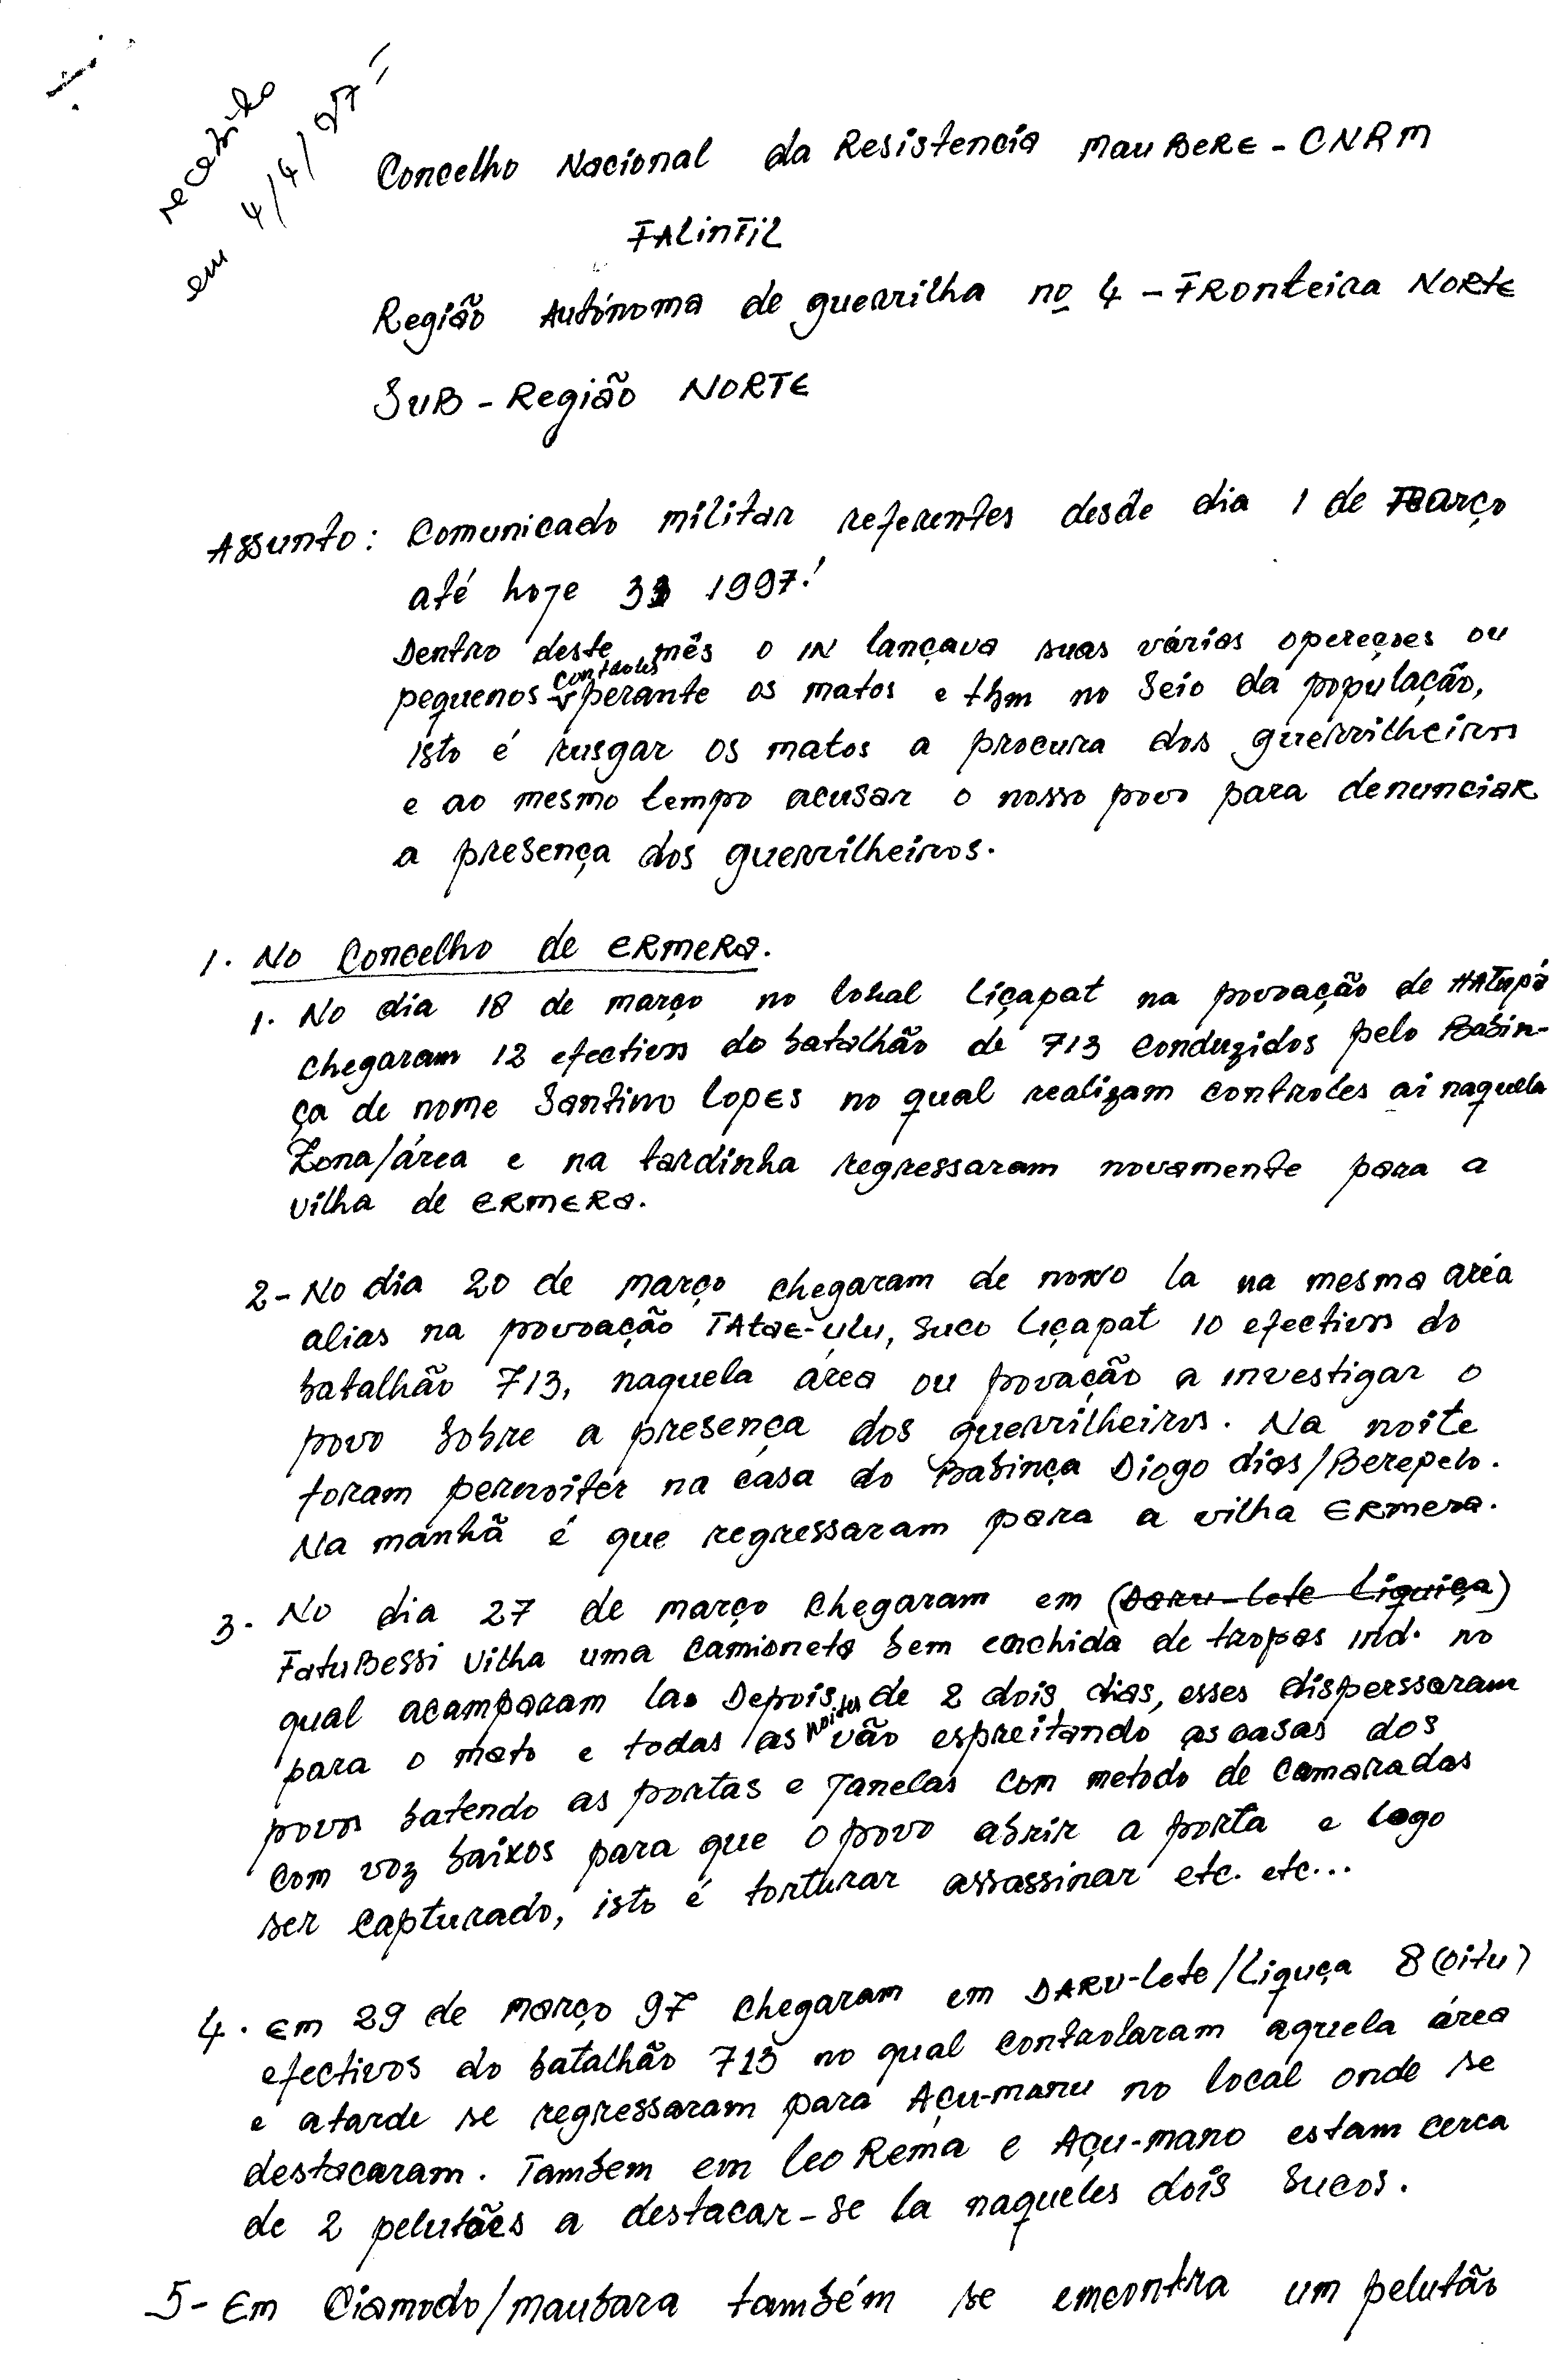 recebido
em 4/4/97
Concelho Nacional da Resistencia mauBERE - CNRM
FALinTiL
Região Autónoma de guerrilha nº 4 - FRonteira NORtE
SUB - Região NORTE
Assunto: Comunicado militar referentes desde dia 1 de março
até hoje 1997!
Dentro deste mês o IN lançava suas várias opereções ou
pequenos controles perante os matos e tbm no seio da população,
isto é rusgar os matos a procura dos guerrilheiros
e ao mesmo tempo acusar o nosso povo para denunciar
a presença dos guerrilheiros.
1. No Concelho de ERmeRa.
1. No dia 18 de março no lokal Liçapat na povoação de HAtupá
chegaram 12 efectivos do batalhão de 713 conduzidos pelo Babin-
ça de nome Santino Lopes no qual realizam controles ai naquela
Zona/área e na tardinha regressaram novamente para a
vilha de ERmERa.
2- No dia 20 de março chegaram de novo la na mesma area
alias na povoação TAtae-ulu, suco Liçapat 10 efectivos do
batalhão 713, naquela área ou povação a investigar o
povo sobre a presença dos guerrilheiros. Na noite
foram pernoiter na casa do Babinça Diogo dias/Berepelo.
Na manhã é que regressaram para a vilha Ermera.
3. No dia 27 de março chegaram em (Daru-lete Liquiça)
FatuBessi vilha uma camioneta bem enchida de tropas ind. no
qual acamparam la. Depois de 2 dois dias, esses disperssaram
para o mato e todas as noites vão espreitando as casas dos
povos batendo as portas e Janelas com metodo de camaradas
com voz baixos para que o povo abrir a porta e logo
ser capturado, isto é torturar assassinar etc. etc...
4. Em 29 de março 97 chegaram em DARU-Lete/Liquça 8 (oitu)
efectivos do batalhão 713 no qual controlaram aquela área
e atarde se regressaram para Açu-manu no local onde se
destacaram. Tambem em Leo Rema e Açu-mano estam cerca
de 2 pelutões a destacar-se la naqueles dois sucos.
5- Em Ciamodo/maubara também se emcontra um pelutão